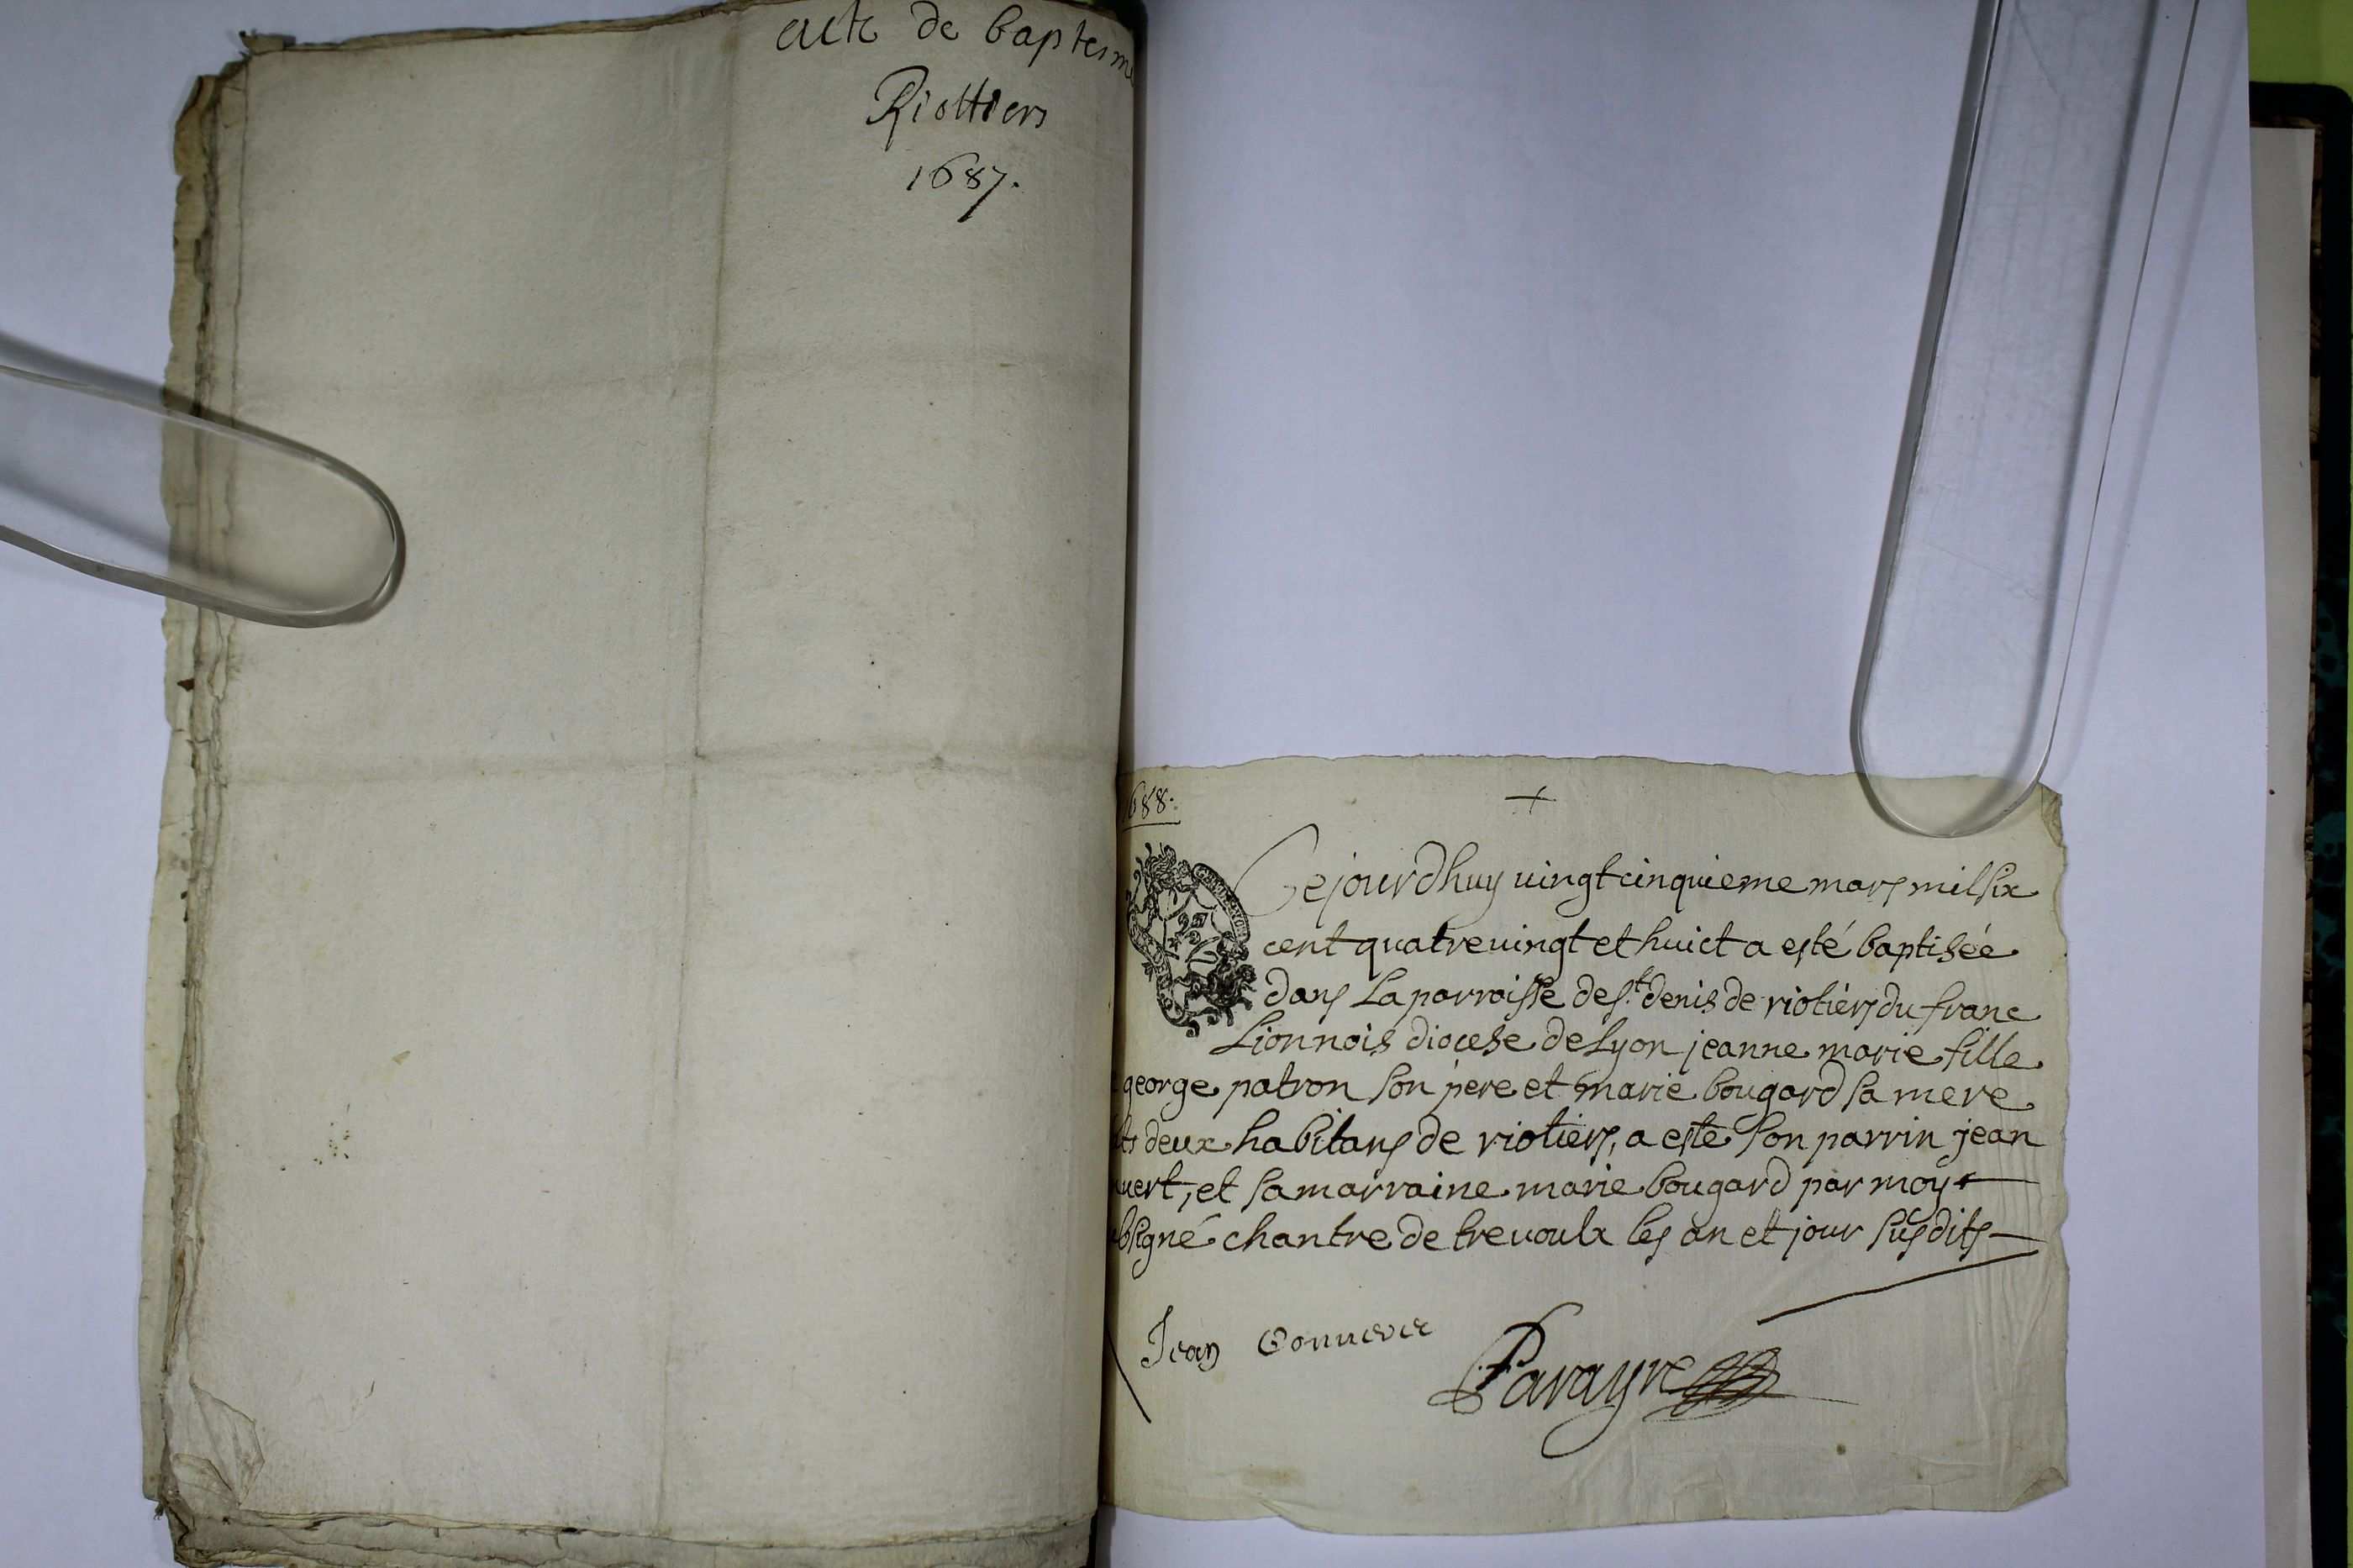 acte de baptesm
Riottiers
1687.
1688.
Cejourdhuy vingtcinquieme mars mil six
cent quatrevingt et huict a esté baptisée
dans la parroisse de st denis de riotiers du franc
Lionnois diocese de Lyon jeanne marie fille
george patron son pere et marie bougard sa mere
deux habitans de riotiers, a esté son parrin jean
vert, et sa marraine marie bougard par moy
bsigné chantre de trevoulx les an et jour susdits
Jean
Parayre